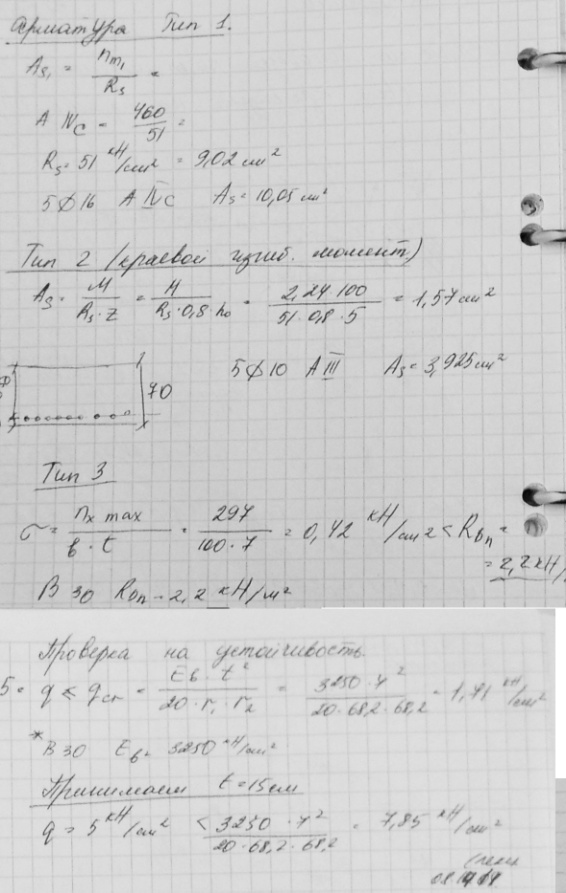 Арматура Тип 1.
As₁ = nm₁ / Rs =
А IVс = 460 / 51 =
Rs = 51 кН/см² = 9,02 см²
5Ø16 А IVс As = 10,05 см²
Тип 2 (краевой изгиб. момент)
As = M / Rs·z = M / Rs·0,8·h₀ = 2,24·100 / 51·0,8·5 = 1,57 см²
5Ø10 А III As = 3,925 см²
70
Тип 3
σ = nx max / b·t = 297 / 100·7 = 0,42 кН/см² < Rbn =
= 2,2 кН/
В 30 Rbn = 2,2 кН/м²
Проверка на устойчивость
5 = q ≤ qcr = Eb·t² / 20·r₁·r₂ = 3250·7² / 20·68,2·68,2 = 1,71 кН/см²
*В 30 Eb = 3250 кН/см²
Принимаем t = 15 см
q = 5 кН/см² < 3250·7² / 20·68,2·68,2 = 7,85 кН/см²